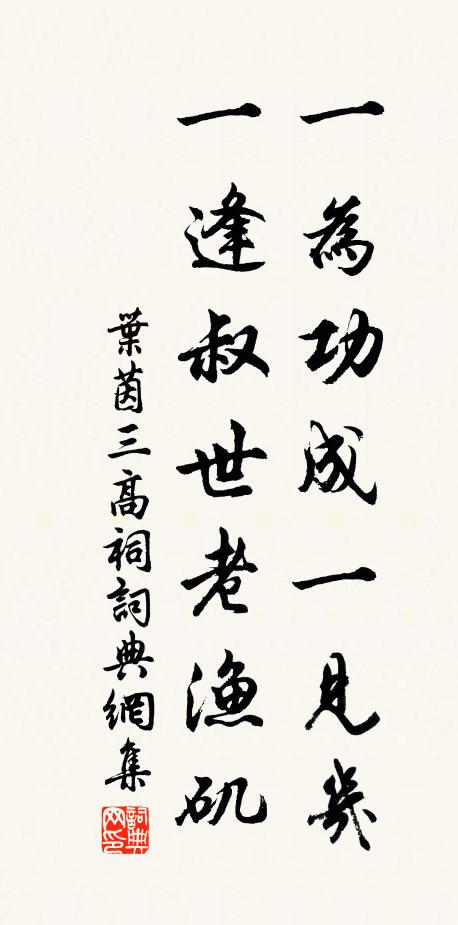 一為功成一見幾
一逢叔世老漁矶
葉茵三高祠詞典網集
詞典网印